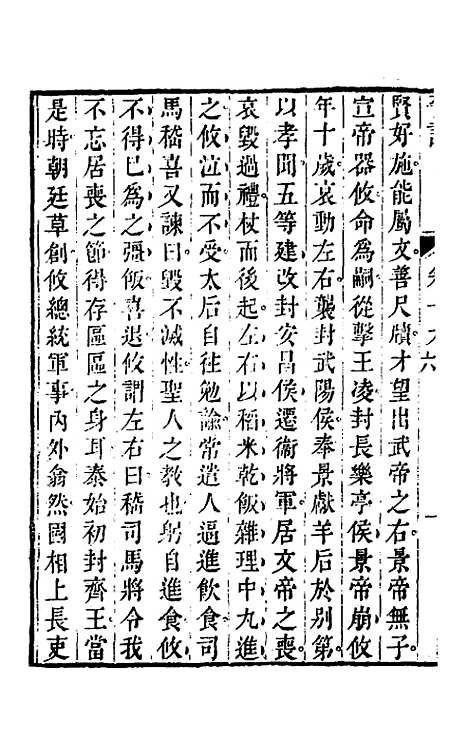 賢好施能屬文善尺牘才望出武帝之右景帝無子
宣帝器攸命爲嗣從擊王凌封長樂亭侯景帝崩攸
年十歲哀動左右襲封武陽侯奉景獻羊后於別第
以孝聞五等建改封安昌侯遷衞將軍居文帝之喪
哀毀過禮杖而後起左右以稻米乾飯雜理中丸進
之攸泣而不受太后自往勉諭常遣人逼進飲食司
馬嵇喜又諫曰毀不滅性聖人之教也躬自進食攸
不得已爲之彊飯喜退攸謂左右曰嵇司馬將令我
不忘居喪之節得存區區之身耳泰始初封齊王當
是時朝廷草創攸總統軍事內外翕然國相上長吏